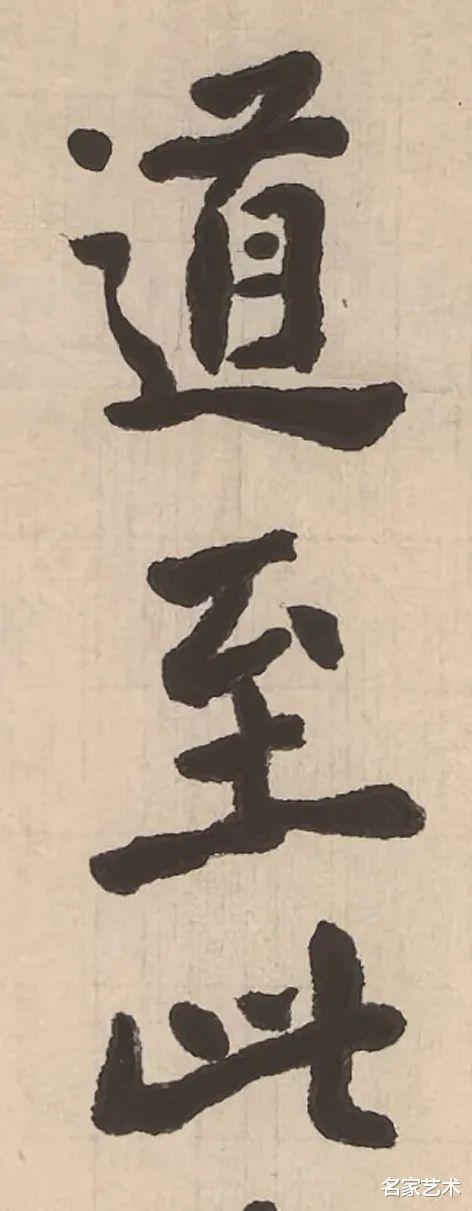 道至此
名家艺术